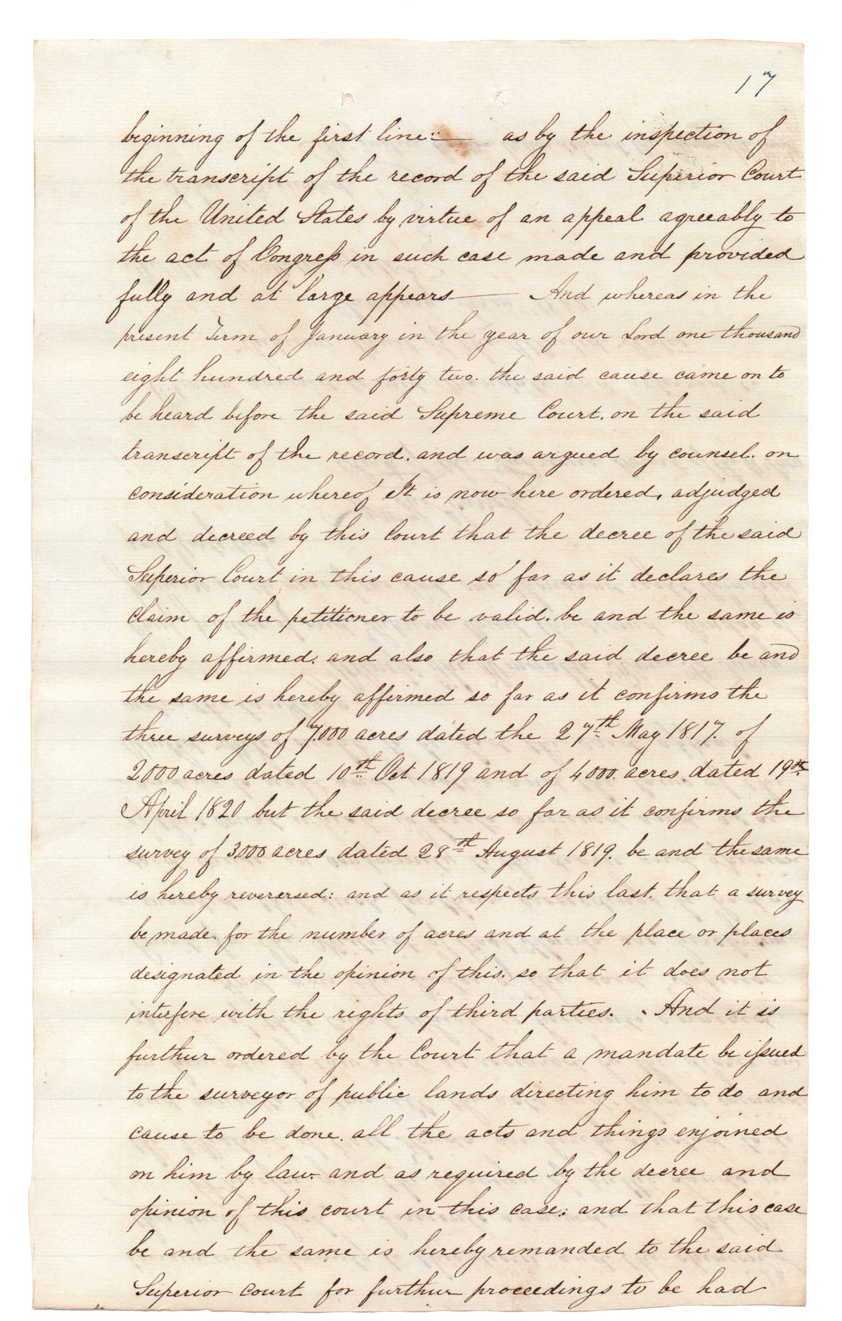 17
beginning of the first line:— as by the inspection of
the transcript of the record of the said Superior Court
of the United States by virtue of an appeal agreeably to
the act of Congress in such case made and provided
fully and at large appears — And whereas in the
present Term of January in the year of our Lord one thousand
eight hundred and forty two. the said cause came on to
be heard before the said Supreme Court. on the said
transcript of the record. and was argued by counsel. on
consideration whereof It is now here ordered, adjudged
and decreed by this Court that the decree of the said
Superior Court in this cause so far as it declares the
claim of the petitioner to be valid. be and the same is
hereby affirmed; and also that the said decree be and
the same is hereby affirmed so far as it confirms the
three surveys of 7,000 acres dated the 27th May 1817. of
2000 acres dated 10th Oct 1819 and of 4000. acres dated 19th
April 1820 but the said decree so far as it confirms the
survey of 3,000 acres dated 28th August 1819. be and the same
is hereby reverersed: and as it respects this last. that a survey
be made. for the number of acres and at the place or places
designated in the opinion of this. so that it does not
interfere with the rights of third parties. - And it is
furthur ordered by the Court that a mandate be issued
to the surveyor of public lands directing him to do and
cause to be done. all the acts and things enjoined
on him by law. and as required by the decree and
opinion of this court in this case; and that this case
be and the same is hereby remanded to the said
Superior court for furthur proceedings to be had